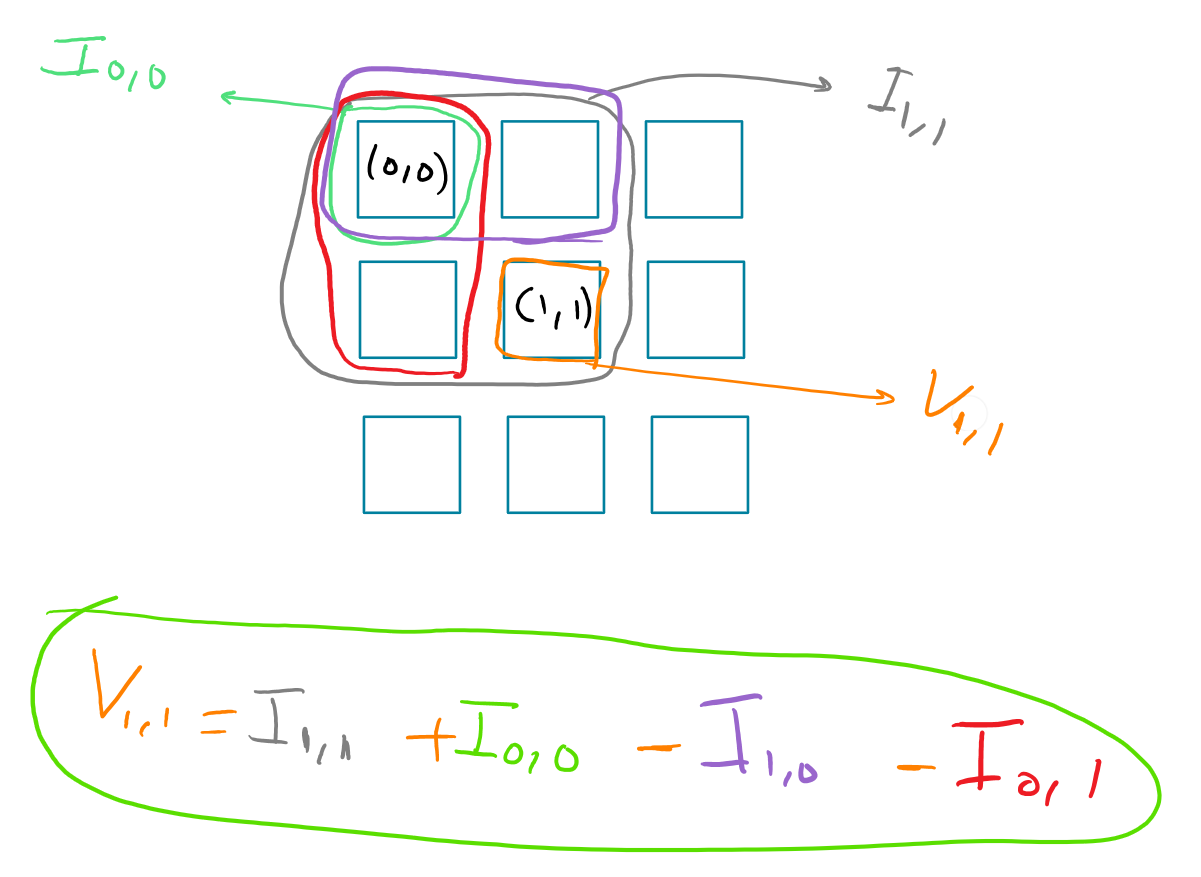 I0,0
I1,1
(0,0)
(1,1)
V1,1
V1,1 = I1,1 + I0,0 - I1,0 - I0,1